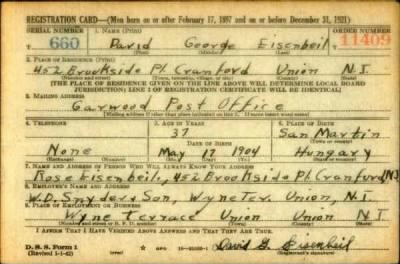 REGISTRATION CARD—(Men born on or after February 17, 1897 and on or before December 31, 1921)
SERIAL NUMBER 1. NAME (Print) ORDER NUMBER
660 David George Eisenbeil 11409
(First) (Middle) (Last)
2. PLACE OF RESIDENCE (Print)
452 Brookside Pl. Cranford Union N.J.
(Number and street) (Town, township, village, or city) (County) (State)
[THE PLACE OF RESIDENCE GIVEN ON THE LINE ABOVE WILL DETERMINE LOCAL BOARD
JURISDICTION; LINE 2 OF REGISTRATION CERTIFICATE WILL BE IDENTICAL]
3. MAILING ADDRESS
Garwood Post Office
[Mailing address if other than place indicated on line 2. If same insert word same]
4. TELEPHONE 5. AGE IN YEARS 6. PLACE OF BIRTH
37 San Martin
DATE OF BIRTH (Town or county)
None May 17 1904 Hungary
(Exchange) (Number) (Mo.) (Day) (Yr.) (State or country)
7. NAME AND ADDRESS OF PERSON WHO WILL ALWAYS KNOW YOUR ADDRESS
Rose Eisenbeil, 452 Brookside Pl. Cranford (N.J.
8. EMPLOYER'S NAME AND ADDRESS
W.D. Snyder & Son, Wyne Ter. Union, N.J.
9. PLACE OF EMPLOYMENT OR BUSINESS
Wyne Terrace Union Union N.J.
(Number and street or R. F. D. number) (Town) (County) (State)
I AFFIRM THAT I HAVE VERIFIED ABOVE ANSWERS AND THAT THEY ARE TRUE.
D. S. S. Form 1
(Revised 1-1-42) GPO David G. Eisenbeil